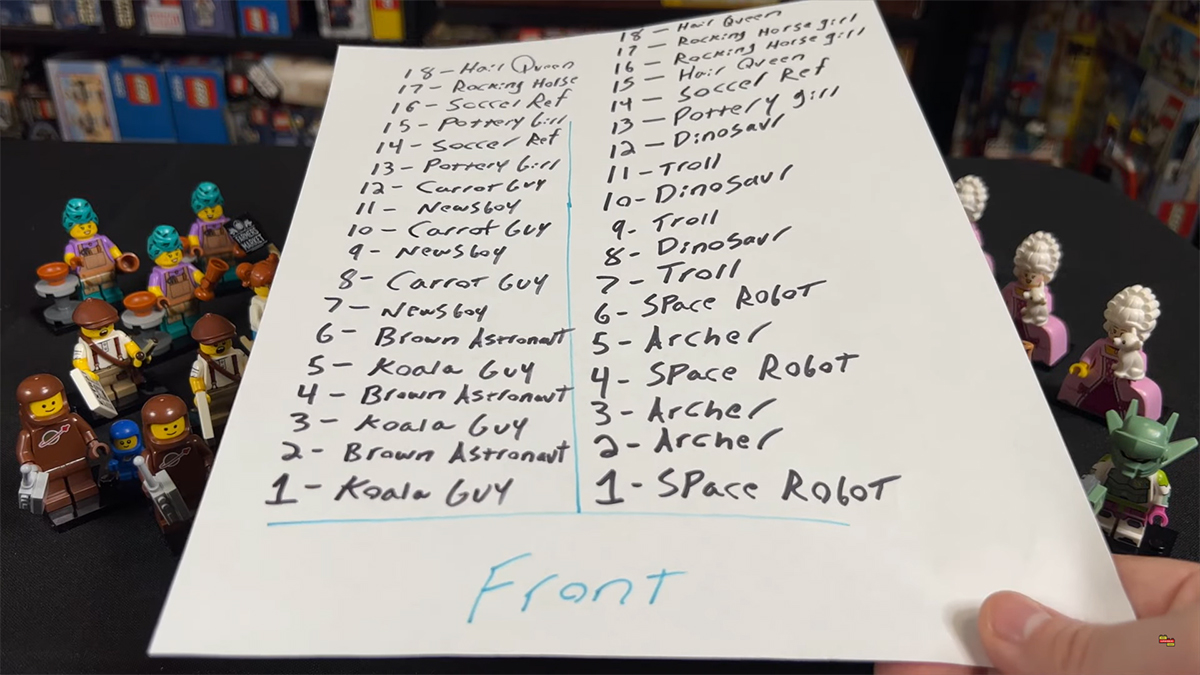 18 - Hair Queen
17 - Rocking Horse
16 - Soccer Ref
15 - Pottery Girl
14 - Soccer Ref
13 - Pottery Girl
12 - Carrot Guy
11 - Newsboy
10 - Carrot Guy
9 - Newsboy
8 - Carrot Guy
7 - Newsboy
6 - Brown Astronaut
5 - Koala Guy
4 - Brown Astronaut
3 - Koala Guy
2 - Brown Astronaut
1 - Koala Guy
18 - Hair Queen
17 - Rocking Horse girl
16 - Rocking Horse girl
15 - Hair Queen
14 - Soccer Ref
13 - Pottery girl
12 - Dinosaur
11 - Troll
10 - Dinosaur
9 - Troll
8 - Dinosaur
7 - Troll
6 - Space Robot
5 - Archer
4 - Space Robot
3 - Archer
2 - Archer
1 - Space Robot
Front
FARMERS
MARKET
LEGO
LEGO
LEGO